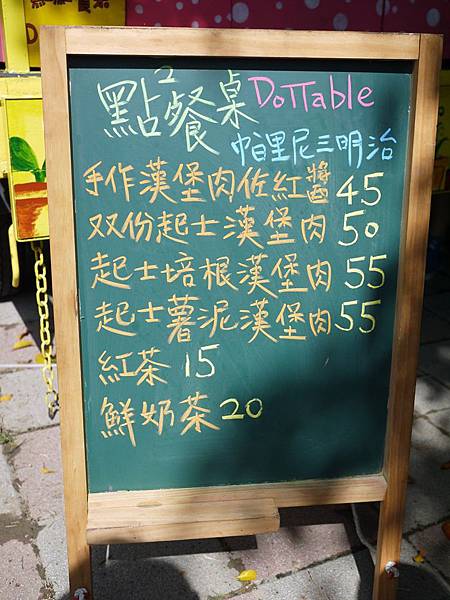 點2餐桌 DoTTable
帕里尼三明治
手作漢堡肉佐紅醬 45
双份起士漢堡肉 50
起士培根漢堡肉 55
起士薯泥漢堡肉 55
紅茶 15
鮮奶茶 20